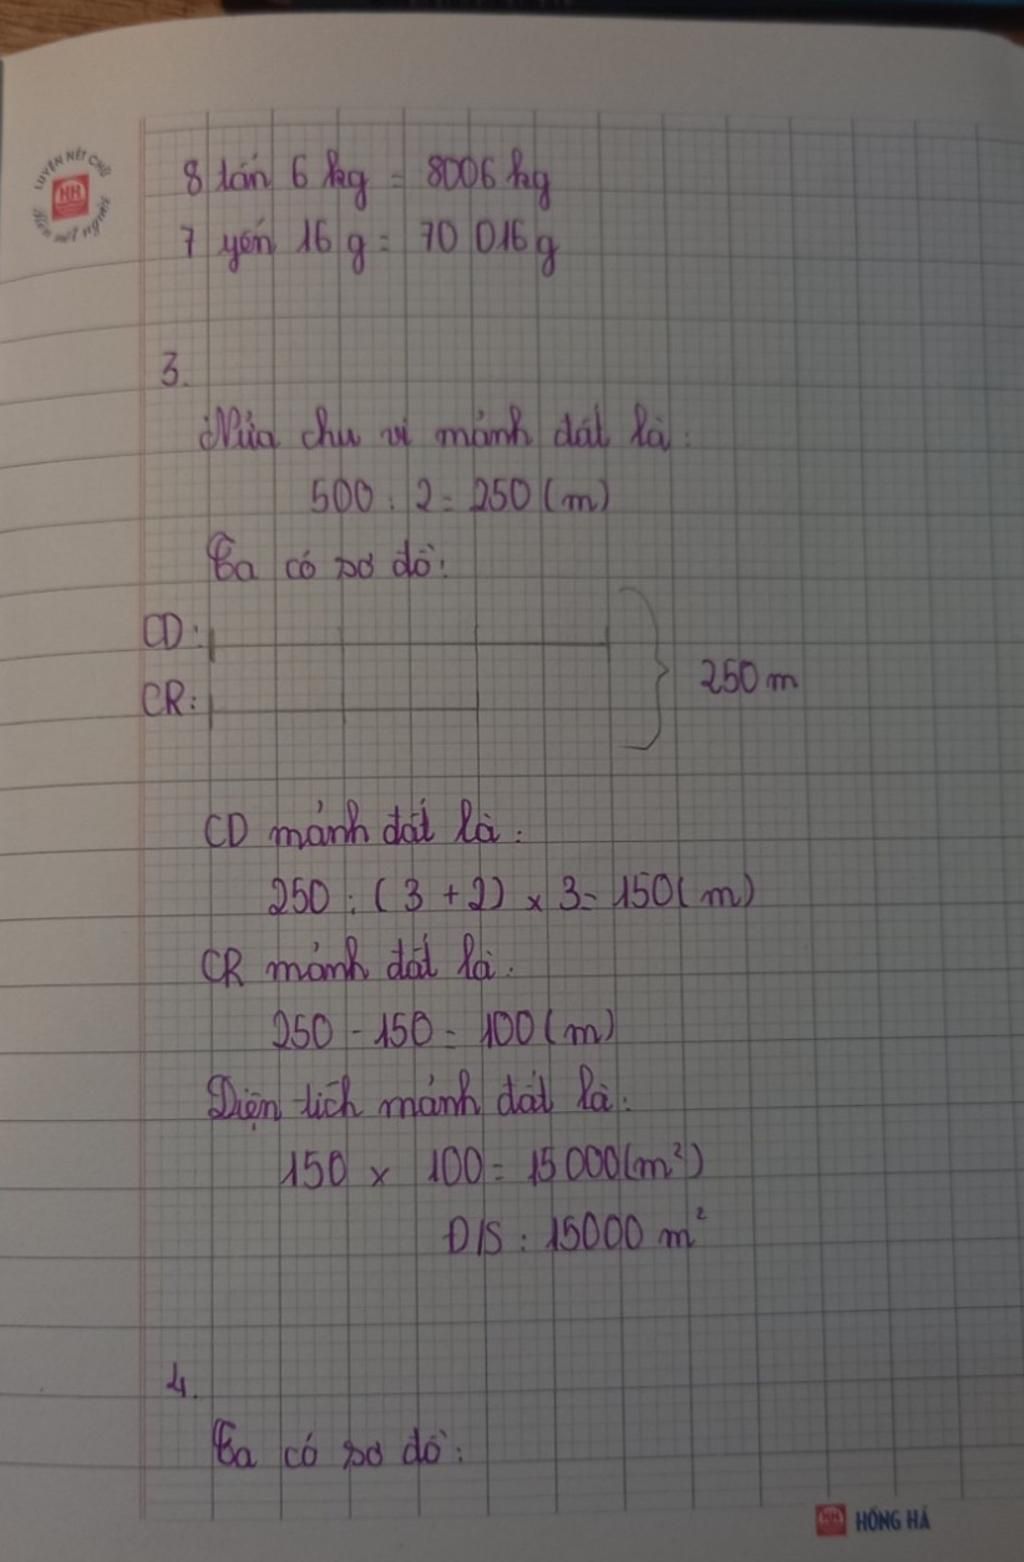 LUYỆN NÉT CHỮ
HH
Rèn nết người
8 tấn 6 kg = 8006 kg
7 yến 16 g = 70 016 g
3.
Nửa chu vi mảnh đất là:
500 : 2 = 250 (m)
Ta có sơ đồ:
CD:
CR:
250 m
CD mảnh đất là:
250 : (3 + 2) x 3 = 150 (m)
CR mảnh đất là:
250 - 150 = 100 (m)
Diện tích mảnh đất là:
150 x 100 = 15 000 (m²)
Đ/S: 15000 m²
4.
Ta có sơ đồ:
HH HỒNG HÀ